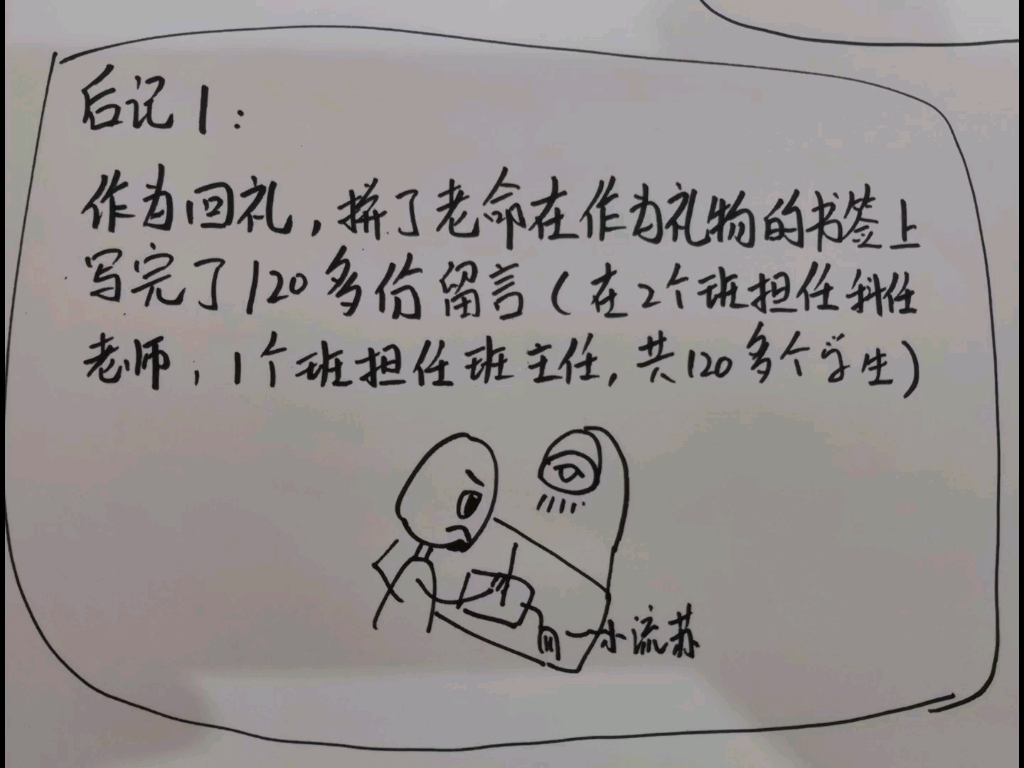 后记1：
作为回礼，拼了老命在作为礼物的书签上
写完了120多份留言（在2个班担任科任
老师，1个班担任班主任，共120多个学生）
小流苏